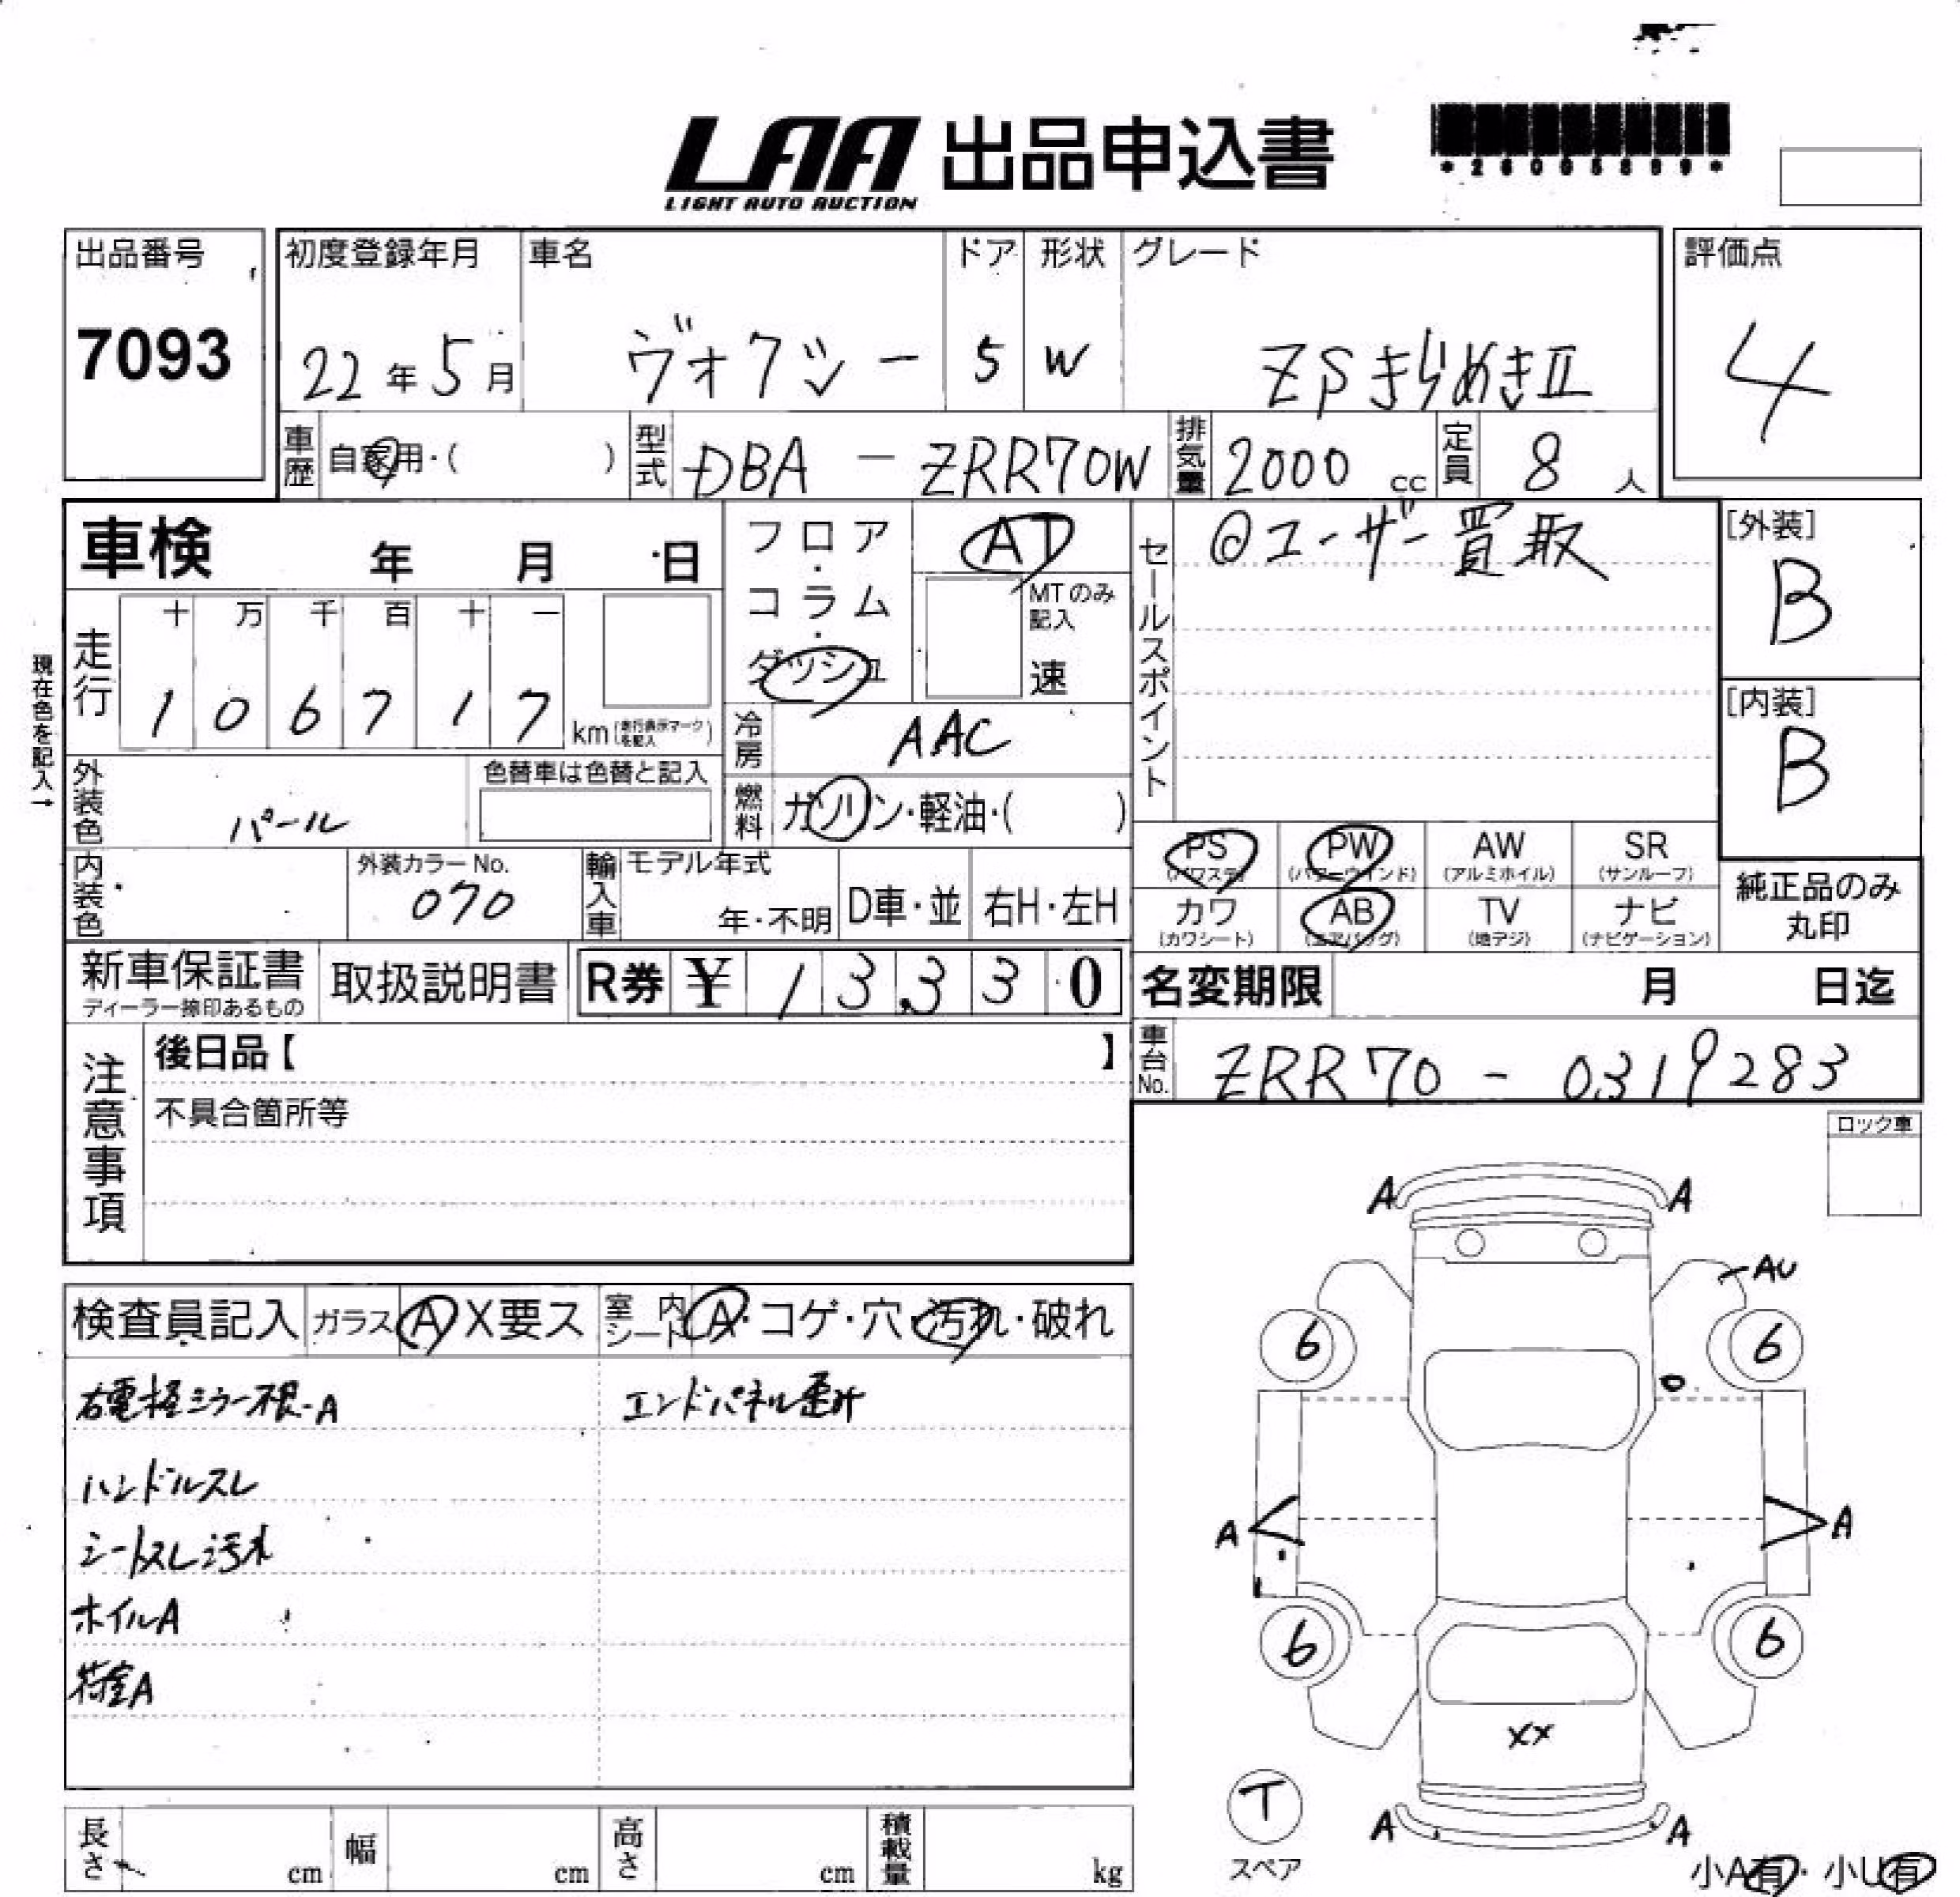 LAA 出品申込書
LIGHT AUTO AUCTION
出品番号
7093
初度登録年月
22年5月
車名
ヴォクシー
ドア
5
形状
W
グレード
ZSきらめきⅡ
評価点
4
車歴 自家用・( )
型式 DBA - ZRR70W
排気量 2000 cc
定員 8 人
車検 年 月 日
フロア・コラム・ダッシュ
AT
MTのみ記入
速
セールスポイント
@ユーザー買取
[外装]
B
[内装]
B
現在色を記入→
走行
十 万 千 百 十 一
1 0 6 7 1 7 km (走行表示マークを記入)
冷房 AAC
外装色 パール
色替車は色替と記入
燃料 ガソリン・軽油・( )
内装色
外装カラーNo.
070
輸入車
モデル年式
年・不明
D車・並
右H・左H
PS (パワステ)
PW (パワーウインド)
AW (アルミホイル)
SR (サンルーフ)
カワ (カワシート)
AB (エアバッグ)
TV (地デジ)
ナビ (ナビゲーション)
純正品のみ
丸印
新車保証書
ディーラー捺印あるもの
取扱説明書
R券 ¥ 13,330
名変期限 月 日迄
車台No. ZRR70 - 0319283
注意事項
後日品【 】
不具合箇所等
ロック車
検査員記入
ガラス A X要ス
室内シート A・コゲ・穴・汚れ・破れ
右電格ミラー根-A
エンドパネル歪み
ハンドルスレ
シートスレ汚れ
ホイルA
荷室A
A A
AU
6 6
A A
6 6
XX
T
スペア
A A
小A有・小U有
長さ cm
幅 cm
高さ cm
積載量 kg